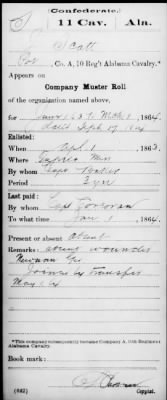 (Confederate.)
S 11 Cav. Ala.
Scott
Pvt, Co. A, 10 Reg't Alabama Cavalry.*
Appears on
Company Muster Roll
of the organization named above,
for 1864.
Enlisted:
When 1, 1863.
Where Miss
By whom Capt
Period 3 yrs
Last paid:
By whom Capt
To what time Jan 1, 1864.
Present or absent Absent
Remarks: absent wounded
Newnan Ga
Joined by transfer
May 1, 64
*This company subsequently became Company A, 11th Regiment Alabama Cavalry.
Book mark:
(642) Copyist.